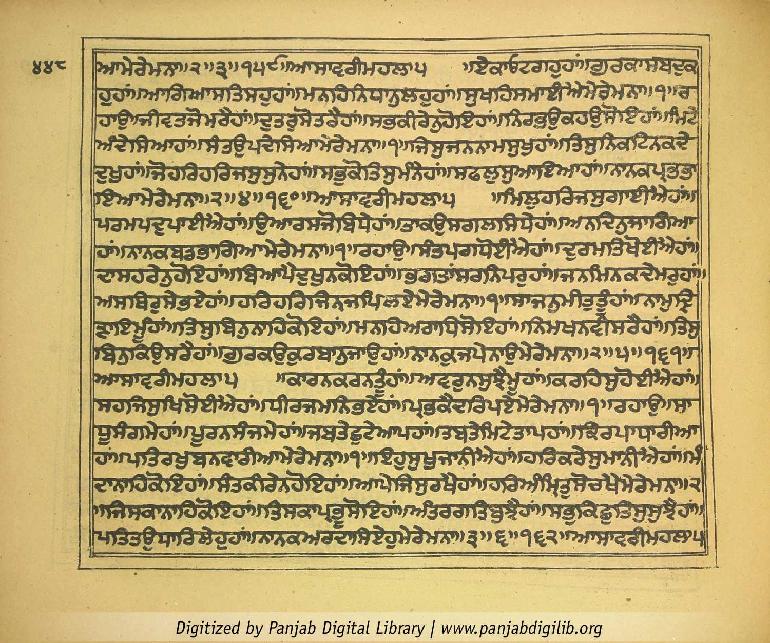 ੪੪੮
ਆਮੇਰੇਮਨਾ॥੨॥੩॥੧੫੯॥ਆਸਾਵਰੀਮਹਲਾ੫ ॥ਏਕਾਓਟਗਹੁਹਾਂ॥ਗੁਰਕਾਸਬਦੁਕ
ਹੁਹਾਂ॥ਆਗਿਆਸਤਿਸਹੁਹਾਂ॥ਮਨਹਿਨਿਧਾਨੁਲਹੁਹਾਂ॥ਸੁਖਹਿਸਮਾਈਐਮੇਰੇਮਨਾ॥੧॥ਰ
ਹਾਉ॥ਜੀਵਤਜੋਮਰੈਹਾਂ॥ਦੁਤਰੁਸੋਤਰੈਹਾਂ॥ਸਭਕੀਰੇਨੁਹੋਇਹਾਂ॥ਨਿਰਭਉਕਹਉਸੋਇਹਾਂ॥ਮਿਟੇ
ਅੰਦੇਸਿਆਹਾਂ॥ਸੰਤਉਪਦੇਸਿਆਮੇਰੇਮਨਾ॥੧॥ਜਿਸੁਜਨਨਾਮਸੁਖੁਹਾਂ॥ਤਿਸੁਨਿਕਟਿਨਕਦੇ
ਦੁਖੁਹਾਂ॥ਜੋਹਰਿਹਰਿਜਸੁਸੁਨੇਹਾਂ॥ਸਭੁਕੋਤਿਸੁਮੰਨੇਹਾਂ॥ਸਫਲੁਸੁਆਇਆਹਾਂ॥ਨਾਨਕਪ੍ਰਭਭਾ
ਇਆਮੇਰੇਮਨਾ॥੨॥੪॥੧੬੦॥ਆਸਾਵਰੀਮਹਲਾ੫ ॥ਮਿਲਿਹਰਿਜਸੁਗਾਈਐਹਾਂ॥
ਪਰਮਪਦੁਪਾਈਐਹਾਂ॥ਉਆਰਸਜੋਬਿਧੇਹਾਂ॥ਤਾਕਉਸਗਲਸਿਧੇਹਾਂ॥ਅਨਦਿਨੁਜਾਗਿਆ
ਹਾਂ॥ਨਾਨਕਬਡਭਾਗਿਆਮੇਰੇਮਨਾ॥੧॥ਰਹਾਉ॥ਸੰਤਪਗਧੋਈਐਹਾਂ॥ਦੁਰਮਤਿਖੋਈਐਹਾਂ॥
ਦਾਸਹਰੇਨੁਹੋਇਹਾਂ॥ਬਿਆਪੈਦੁਖੁਨਕੋਇਹਾਂ॥ਭਗਤਾਂਸਰਨਿਪਰੁਹਾਂ॥ਜਨਮਿਨਕਦੇਮਰੁਹਾਂ॥
ਅਸਥਿਰੁਸੇਭਏਹਾਂ॥ਹਰਿਹਰਿਜਿਨੑਜਪਿਲਏਮੇਰੇਮਨਾ॥੧॥ਸਾਜਨੁਮੀਤੁਤੂੰਹਾਂ॥ਨਾਮੁਦ੍ਰਿ
ੜਾਇਮੂੰਹਾਂ॥ਤਿਸੁਬਿਨੁਨਾਹਿਕੋਇਹਾਂ॥ਮਨਹਿਅਰਾਧਿਸੋਇਹਾਂ॥ਨਿਮਖਨਵੀਸਰੈਹਾਂ॥ਤਿਸੁ
ਬਿਨੁਕਿਉਸਰੈਹਾਂ॥ਗੁਰਕਉਕੁਰਬਾਨੁਜਾਉਹਾਂ॥ਨਾਨਕੁਜਪੇਨਾਉਮੇਰੇਮਨਾ॥੨॥੫॥੧੬੧॥
ਆਸਾਵਰੀਮਹਲਾ੫ ॥ਕਾਰਨਕਰਨਤੂੰਹਾਂ॥ਅਵਰੁਨਸੁਝੈਮੂੰਹਾਂ॥ਕਰਹਿਸੁਹੋਈਐਹਾਂ॥
ਸਹਜਿਸੁਖਿਸੋਈਐਹਾਂ॥ਧੀਰਜਮਨਿਭਏਹਾਂ॥ਪ੍ਰਭਕੈਦਰਿਪਏਮੇਰੇਮਨਾ॥੧॥ਰਹਾਉ॥ਸਾ
ਧੂਸੰਗਮੇਹਾਂ॥ਪੂਰਨਸੰਜਮੇਹਾਂ॥ਜਬਤੇਛੁਟੇਆਪਹਾਂ॥ਤਬਤੇਮਿਟੇਤਾਪਹਾਂ॥ਕਿਰਪਾਧਾਰੀਆ
ਹਾਂ॥ਪਤਿਰਖੁਬਨਵਾਰੀਆਮੇਰੇਮਨਾ॥੧॥ਇਹੁਸੁਖੁਜਾਨੀਐਹਾਂ॥ਹਰਿਕਰੇਸੁਮਾਨੀਐਹਾਂ॥ਮੰ
ਦਾਨਾਹਿਕੋਇਹਾਂ॥ਸੰਤਕੀਰੇਨਹੋਇਹਾਂ॥ਆਪੇਜਿਸੁਰਖੈਹਾਂ॥ਹਰਿਅੰਮ੍ਰਿਤੁਸੋਚਖੈਮੇਰੇਮਨਾ॥੨
॥ਜਿਸਕਾਨਾਹਿਕੋਇਹਾਂ॥ਤਿਸਕਾਪ੍ਰਭੂਸੋਇਹਾਂ॥ਅੰਤਰਗਤਿਬੁਝੈਹਾਂ॥ਸਭੁਕਿਛੁਤਿਸੁਸੁਝੈਹਾਂ॥
ਪਤਿਤਉਧਾਰਿਲੇਹੁਹਾਂ॥ਨਾਨਕਅਰਦਾਸਿਏਹੁਮੇਰੇਮਨਾ॥੩॥੬॥੧੬੨॥ਆਸਾਵਰੀਮਹਲਾ੫
Digitized by Panjab Digital Library | www.panjabdigilib.org